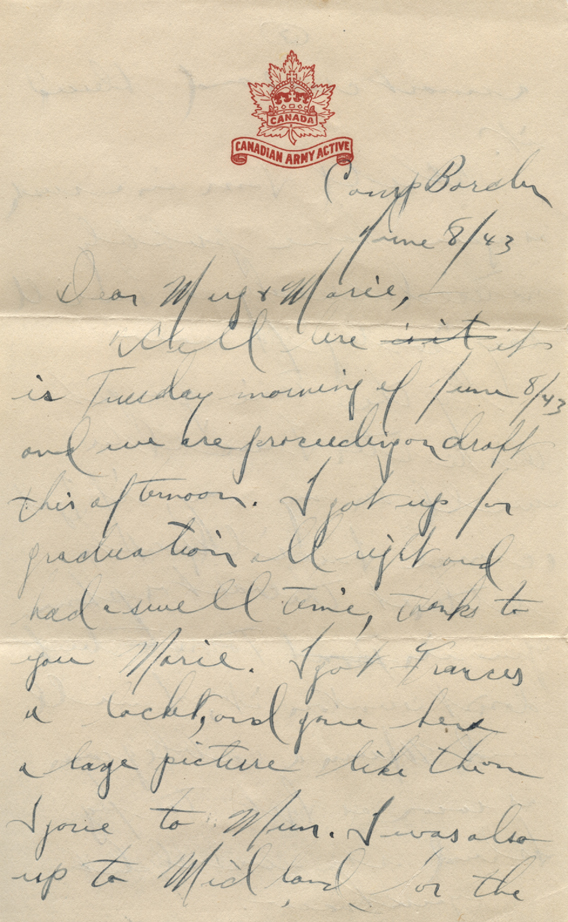 CANADA
CANADIAN ARMY ACTIVE
Camp Borden
June 8/43
Dear Mary & Marie,
Well we isit it
is Tuesday morning of June 8/43
and we are proceeding on draft
this afternoon. I got up for
graduation all right and
had a swell time, thanks to
you Marie. I got Frances
a locket, and gave her
a large picture like them
I gave to Mum. I was also
up to Midland, or the